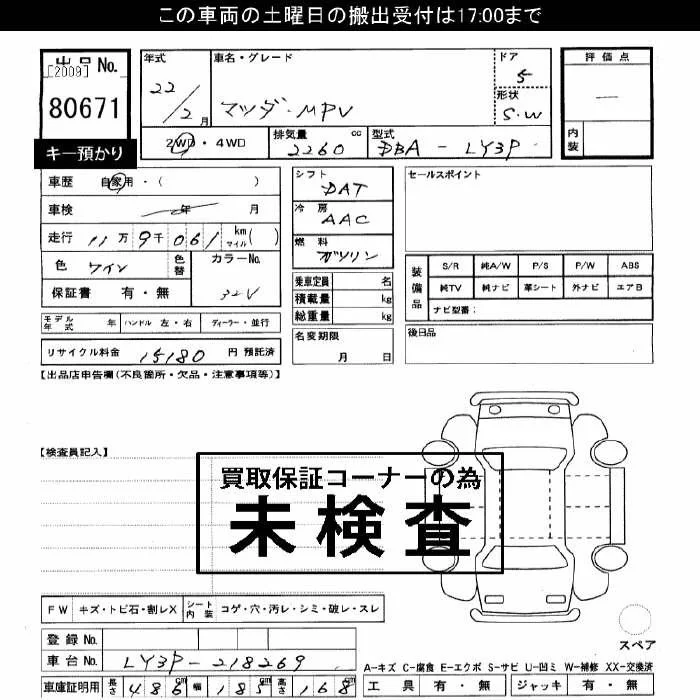 この車両の土曜日の搬出受付は17:00まで
出品 No.
[2009]
80671
キー預かり
年式 22/2月
車名・グレード マツダ・MPV
ドア 5
形状 S.W
評価点 —
内装
2WD・4WD
排気量 2260 cc
型式 DBA-LY3P
車歴 自家用・( )
車検 年 月
走行 11万9千061 km マイル ( )
色 ワイン
色替
カラーNo. 32V
保証書 有・無
シフト DAT
冷房 AAC
燃料 ガソリン
乗車定員 名
積載量 kg
総重量 kg
セールスポイント
装備品
S/R 純A/W P/S P/W ABS
純TV 純ナビ 革シート 外ナビ エアB
ナビ型番:
モデル年式 年 ハンドル 左・右 ディーラー・並行
リサイクル料金 15180 円 預託済
名変期限 月 日
後日品
【出品店申告欄(不良箇所・欠品・注意事項等)】
【検査員記入】
買取保証コーナーの為
未検査
FW キズ・トビ石・割レX
シート内装 コゲ・穴・汚レ・シミ・破レ・スレ
スペア
登録 No.
車台 No. LY3P-218269
A-キズ C-腐食 E-エクボ S-サビ U-凹ミ W-補修 XX-交換済
車庫証明用 長さ 486cm 幅 185cm 高さ 168cm
工具 有・無 ジャッキ 有・無